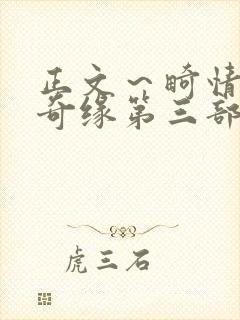 正文～畸情
奇缘第三部
虎三石